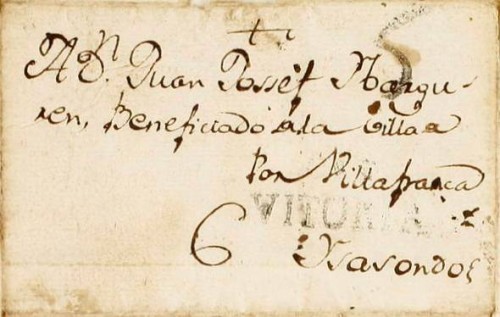 A Dn. Juan Jossef Ybargu-
ren, Beneficiado de la Villa
Por Villafranca
VITORIA
6 Ysasondo